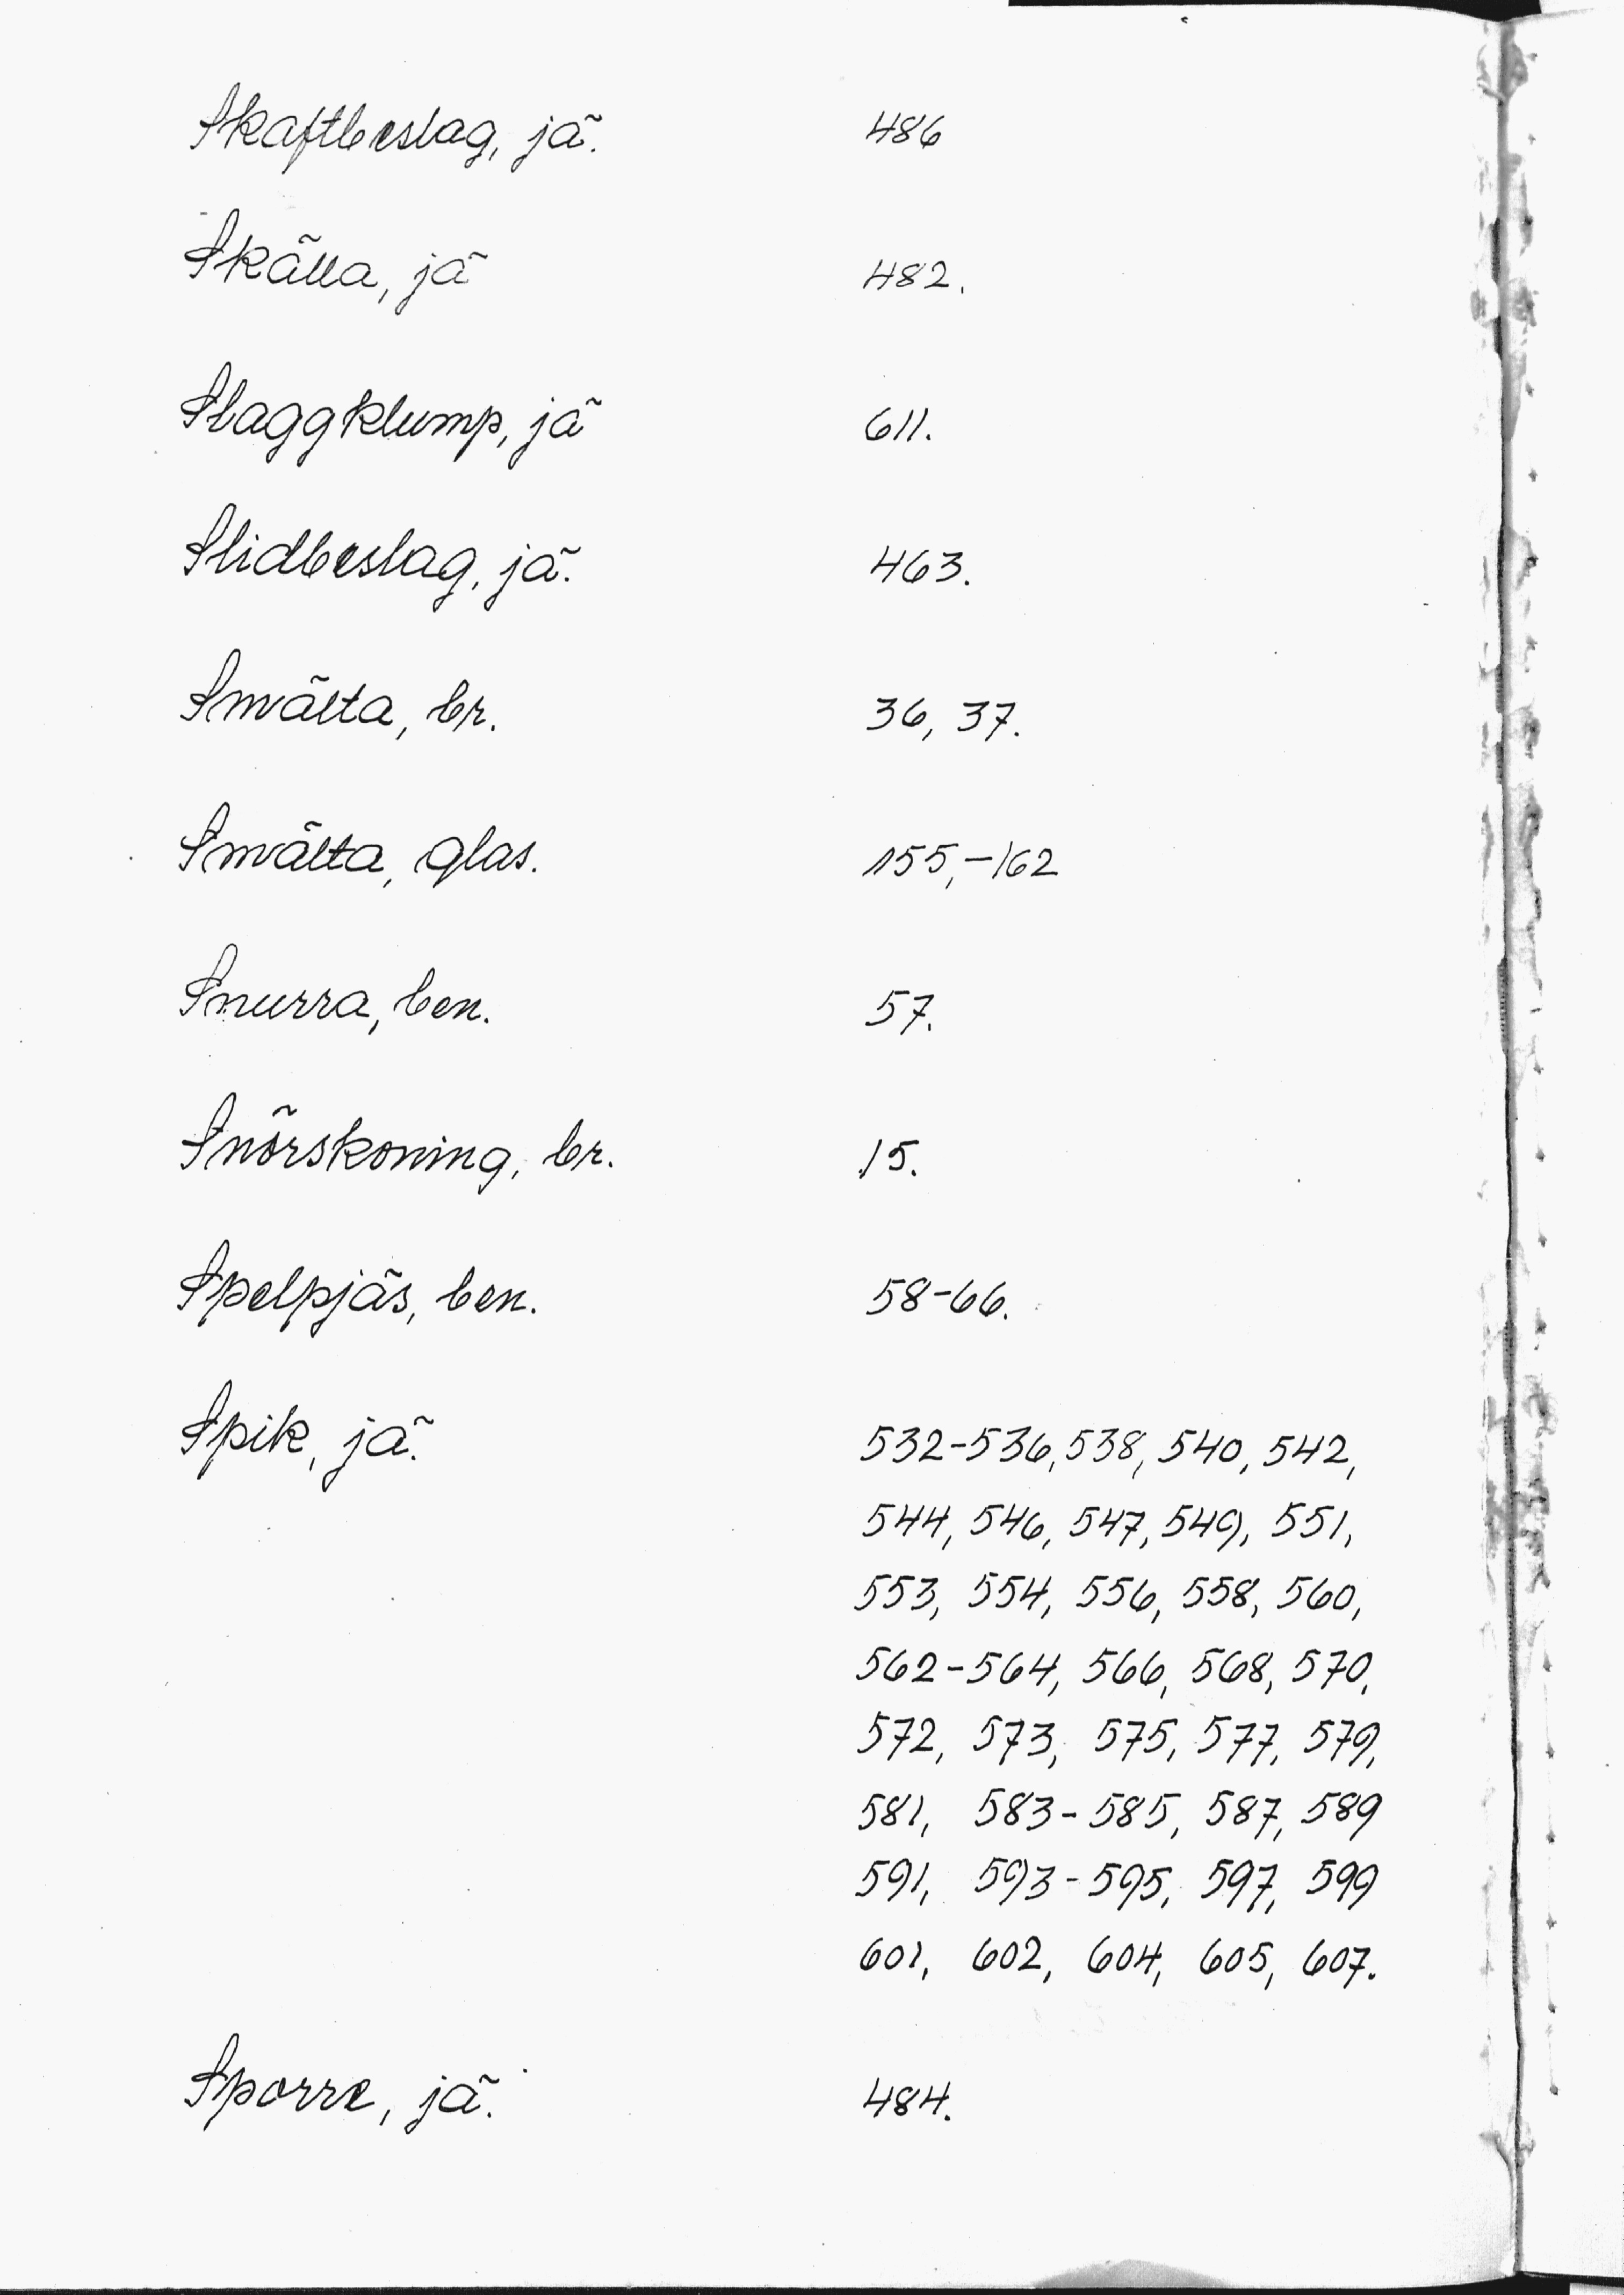 Skaftbeslag, jä. 486
Skälla, jä 482.
Slaggklump, jä 611.
Slidbeslag, jä. 463.
Smälta, br. 36, 37.
Smälta, glas. 155,-162
Snurra, ben. 57.
Snörskoning, br. 15.
Spelpjäs, ben. 58-66.
Spik, jä. 532-536, 538, 540, 542,
544, 546, 547, 549, 551,
553, 554, 556, 558, 560,
562-564, 566, 568, 570,
572, 573, 575, 577, 579,
581, 583-585, 587, 589
591, 593-595, 597, 599
601, 602, 604, 605, 607.
Sporre, jä. 484.